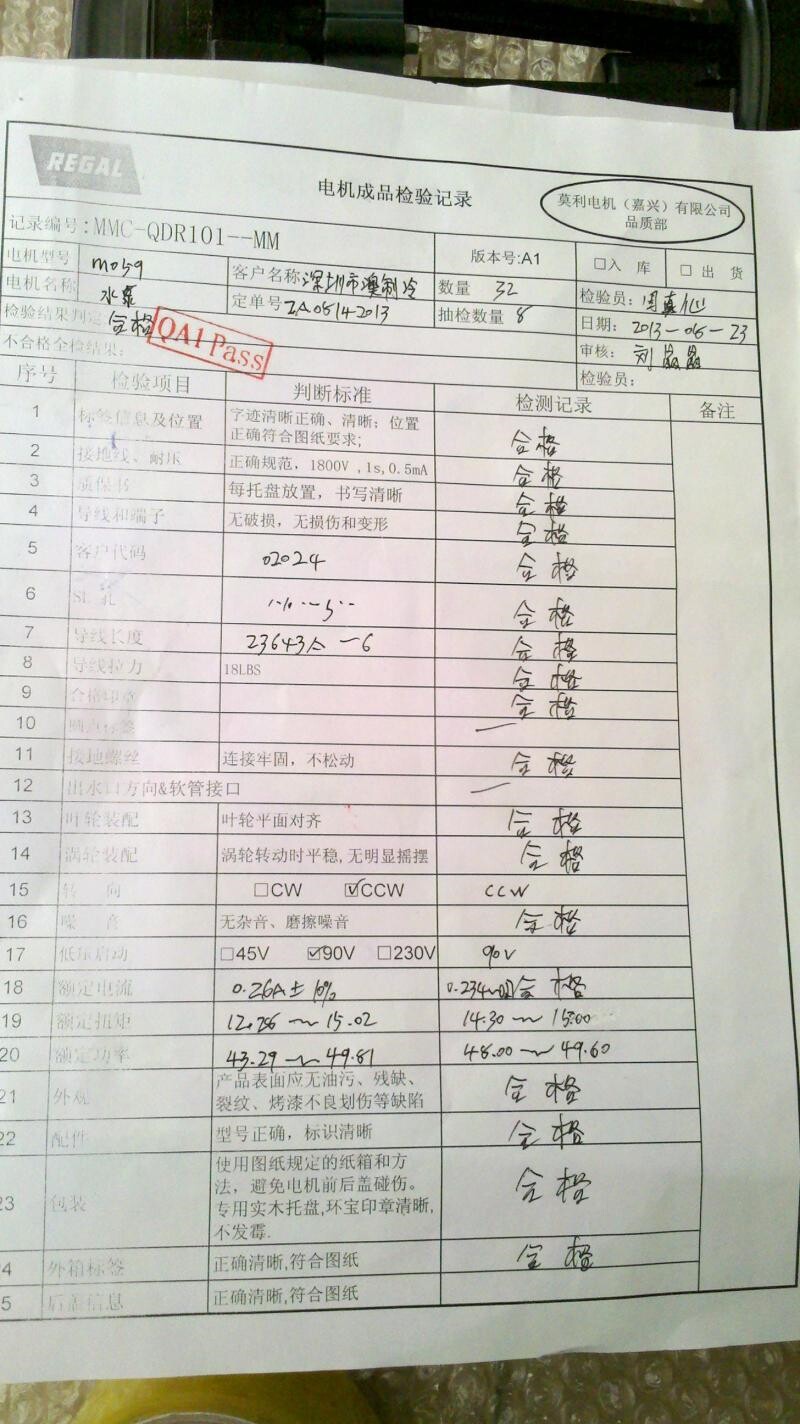 REGAL
电机成品检验记录
莫利电机（嘉兴）有限公司
品质部
记录编号:MMC-QDR101--MM
版本号:A1
□入 库
□ 出 货
电机型号
m059
客户名称
深圳市澳制冷
数量 32
检验员:
电机名称
水泵
定单号
ZA0514-2013
抽检数量 8
日期: 2013-06-23
检验结果判定:
合格
QA1 Pass
审核: 刘晶晶
不合格全检结果:
检验员:
序号 检验项目 判断标准 检测记录 备注
1 标签信息及位置 字迹清晰正确、清晰；位置
正确符合图纸要求; 合格
2 接地线、耐压 正确规范，1800V ,1s,0.5mA 合格
3 质保书 每托盘放置，书写清晰 合格
4 导线和端子 无破损，无损伤和变形 合格
5 客户代码 02024 合格
6 合格
7 导线长度 23643A -6 合格
8 导线拉力 18LBS 合格
9 合格印章 合格
10 —
11 接地螺丝 连接牢固，不松动 合格
12 出水口方向&软管接口 —
13 叶轮装配 叶轮平面对齐 合格
14 涡轮装配 涡轮转动时平稳,无明显摇摆 合格
15 转 向 □CW ☑CCW CCW
16 噪 音 无杂音、磨擦噪音 合格
17 低压启动 □45V ☑90V □230V 90V
18 额定电流 0.26A±10% 合格
19 额定扭矩 ~ 15.02 14.30 ~ 15.00
20 额定功率 43.29 ~ 49.81 48.00 ~ 49.60
21 外观 产品表面应无油污、残缺、
裂纹、烤漆不良划伤等缺陷 合格
22 配件 型号正确，标识清晰 合格
23 包装 使用图纸规定的纸箱和方
法，避免电机前后盖碰伤。
专用实木托盘,环宝印章清晰,
不发霉. 合格
4 外箱标签 正确清晰,符合图纸 合格
5 后盖信息 正确清晰,符合图纸